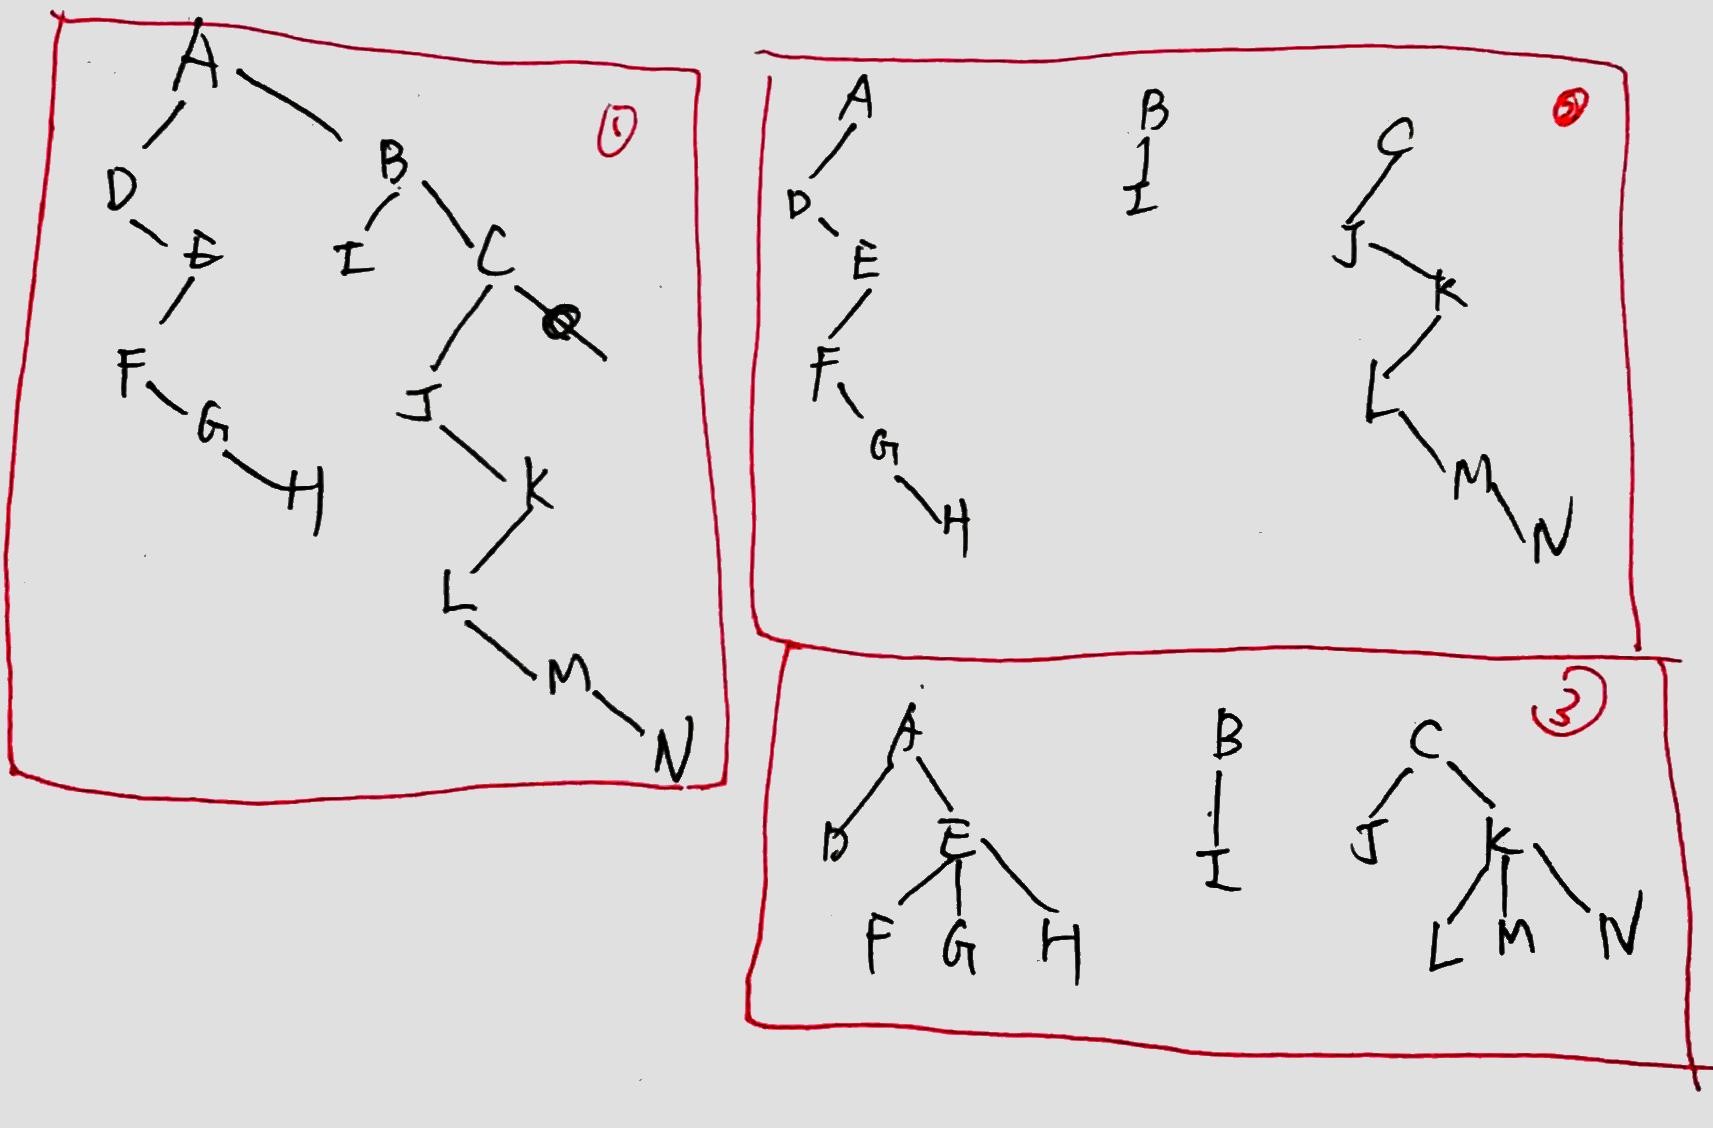 A
①
D
B
E
I
C
F
J
G
H
K
L
M
N
A
B
C
D
I
E
J
K
F
L
G
M
H
N
③
A
B
C
D
E
I
J
K
F
G
H
L
M
N